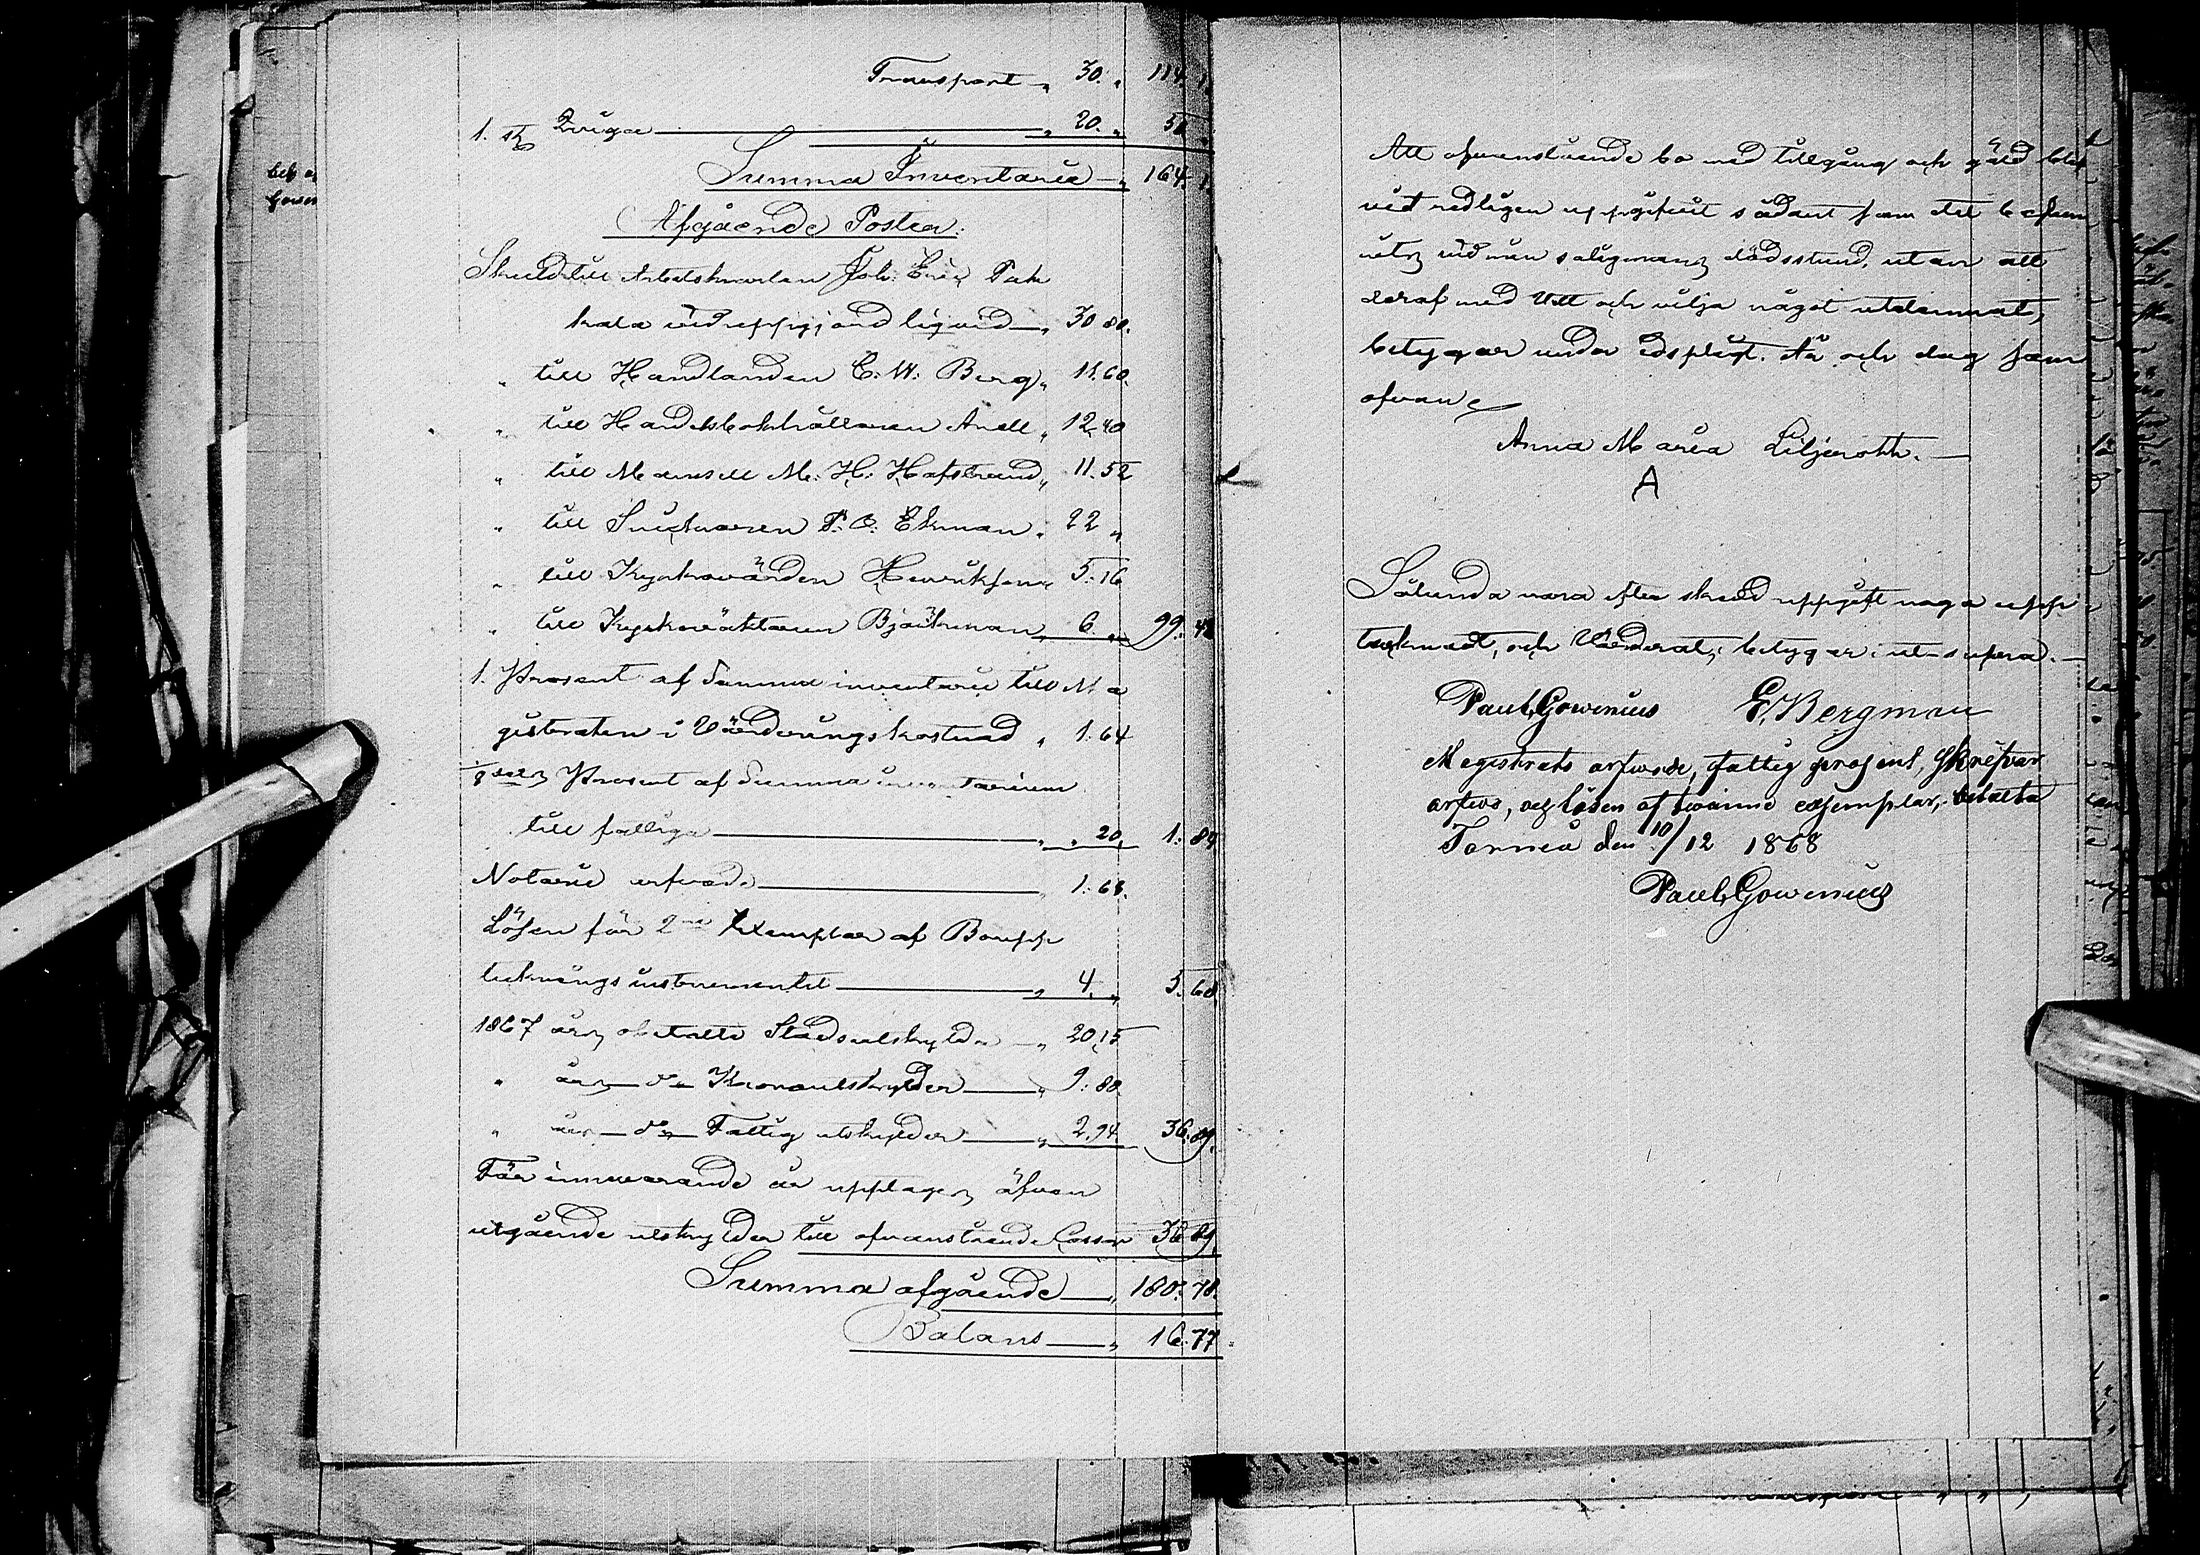 Transport „ 30. „ 114. 1.
1. st. Quiga „ 20. „ 50
Summa Inventarie „ 164. 1.
Afgående Poster:
Skuld till Arbetskarlen Joh: Eric Pak
kala vid uppgjord liqvid „ 30 80.
„ till Handlanden C: W: Berg „ 11. 60.
„ till Handelsbokhållaren Anell „ 12. 40
„ till Mamsell M: H: Hafstrand „ 11. 52
„ till Snickaren P: O: Ekman „ 22 „
„ till Kyrkovärden Henriksson „ 5. 16
„ till Kyrkovaktaren Björkman „ 6. „ 99. 48
1. Prosent af Summa inventarie till Ma
gistraten i Värderingskostnad „ 1. 64
1/8 dels Prosent af Summa inventarium
till fattiga „ „ 20 1. 84
Notarie arfvode „ 1. 68.
Lösen för 2ne Exemplar af Boupp
teckningsinstrumentet „ 4. „ 5. 68
1867 års obetalte Stadsutskylder „ 20. 15
„ års do Kronoutskylder „ 9. 80.
„ års do Fattig utskylder „ 2. 94 36. 89.
För innevarande år upptages äfven
utgående utskylder till ofvanstående Cassor 36 89
Summa afgående „ 180. 78.
Balans „ 16. 77
Att ofvanstående bo med tillgång och gäld blif
vit redligen uppgifvit sådant som det befun
nits vid min salig mans dödsstund, utan att
deraf med vett och vilja något utelemnat,
betygar under edspligt. År och dag som
ofvan
Anna Maria Liljeroth.
A
Sålunda vara efter skedd uppgift noga upp
tecknadt, och Värderat, betygar ut supra.
Paul Gowenius E. Bergman
Magistrats arfvode, fattig prosent, skrifvar
arfvo, och lösen af tvänne exsemplar, betalta
Torneå den 10/12 1868
Paul Gowenius